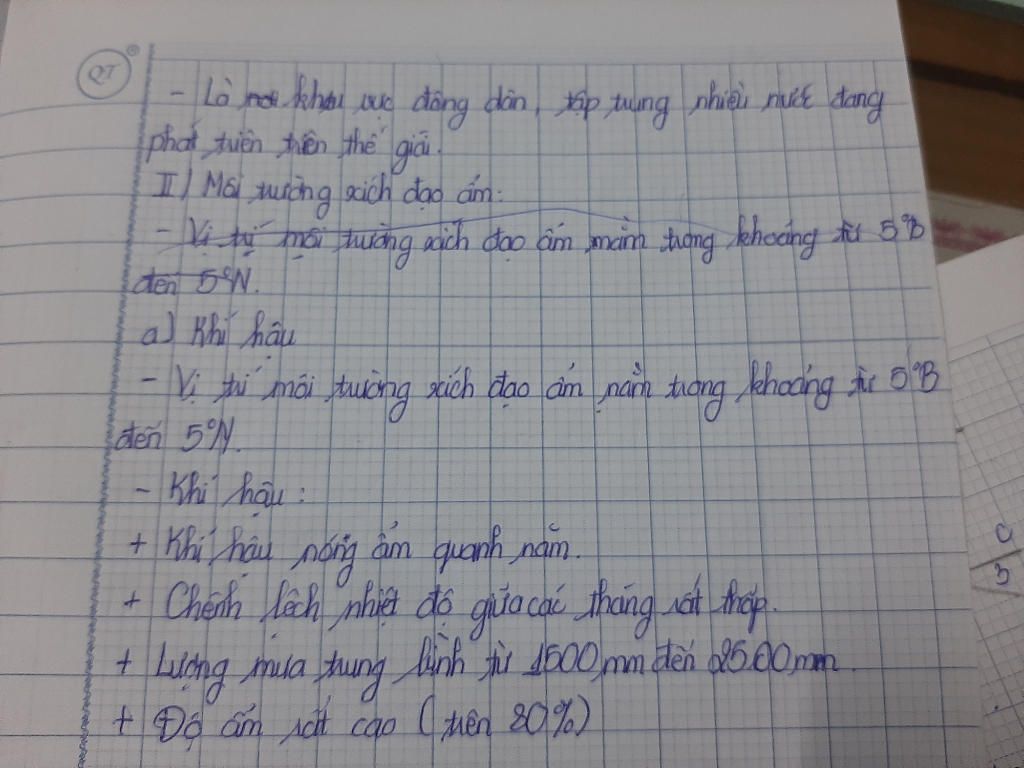 QT
- Là khu vực đông dân, tập trung nhiều nước đang
phát triển trên thế giới.
II) Môi trường xích đạo ẩm:
- Vị trí môi trường xích đạo ẩm nằm trong khoảng từ 5°B
đến 5°N.
a) Khí hậu
- Vị trí môi trường xích đạo ẩm nằm trong khoảng từ 5°B
đến 5°N.
- Khí hậu:
+ Khí hậu nóng ẩm quanh năm.
+ Chênh lệch nhiệt độ giữa các tháng rất thấp.
+ Lượng mưa trung bình từ 1500mm đến 2500mm.
+ Độ ẩm rất cao (trên 80%)